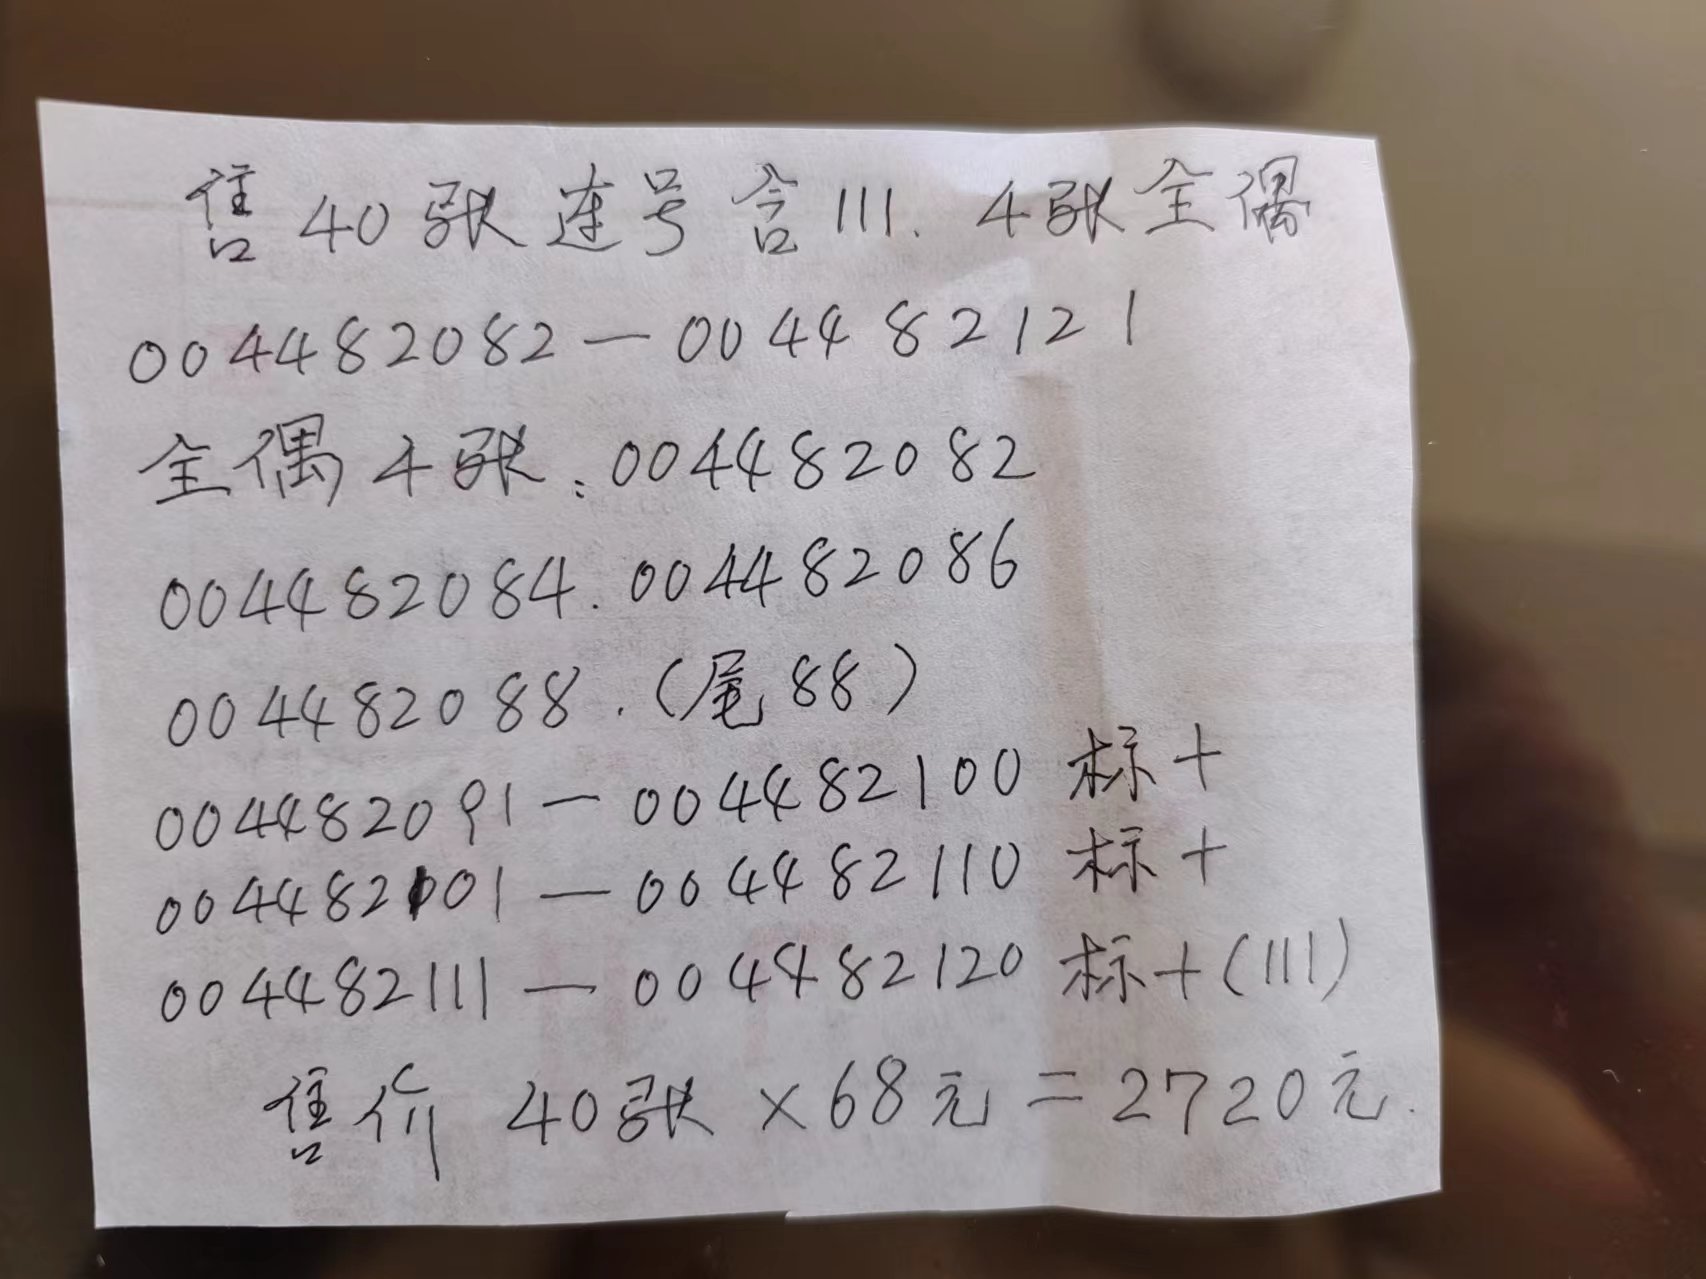 售40张连号含111. 4张全偶
004482082—004482121
全偶4张:004482082
004482084.004482086
004482088.(尾88)
004482091—004482100 标十
004482101—004482110 标十
004482111—004482120 标十(111)
售价 40张×68元=2720元.